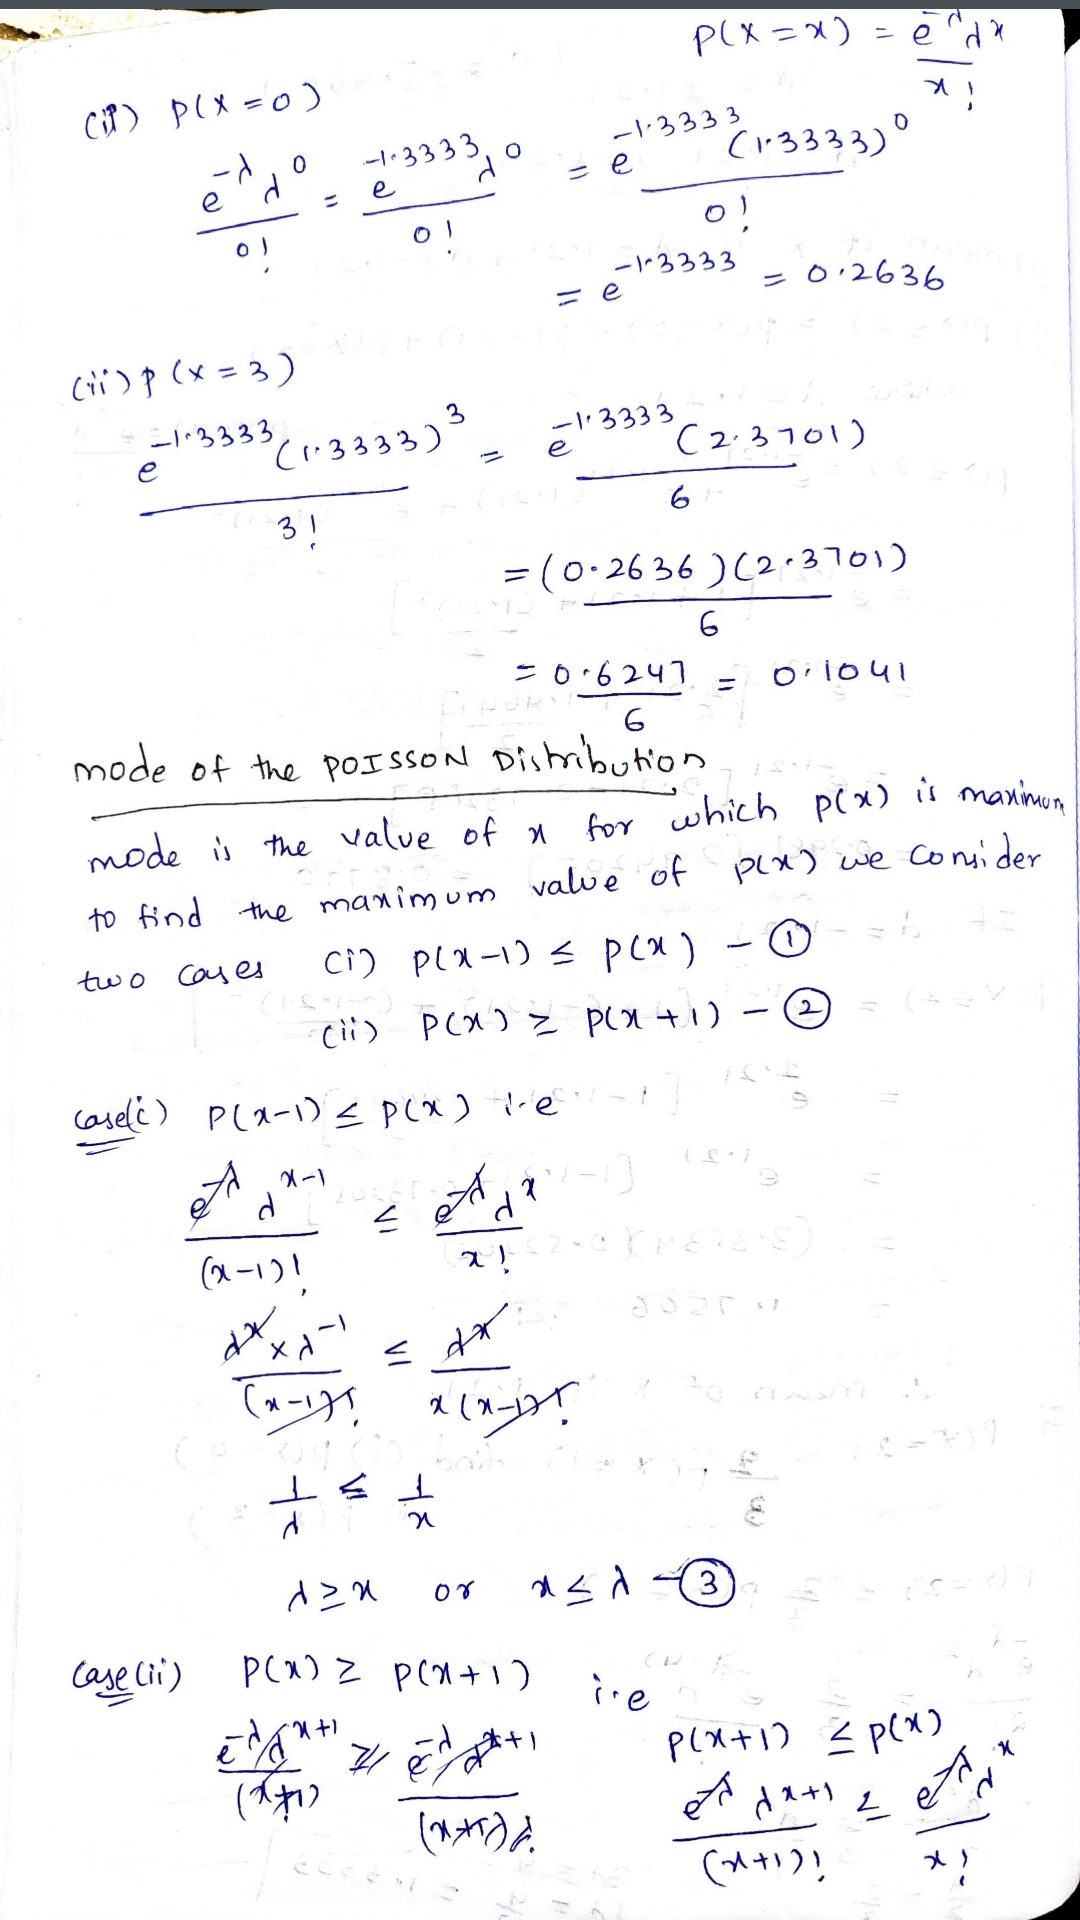 P(X=x) = e^-λ λ^x / x!
(ii) P(X=0)
e^-λ λ^0 / 0! = e^-1.3333 λ^0 / 0! = e^-1.3333 (1.3333)^0 / 0!
= e^-1.3333 = 0.2636
(ii) P(X=3)
e^-1.3333 (1.3333)^3 / 3! = e^-1.3333 (2.3701) / 6
= (0.2636)(2.3701) / 6
= 0.6247 / 6 = 0.1041
mode of the POISSON Distribution
mode is the value of x for which P(x) is maximum
to find the maximum value of P(x) we consider
two cases (i) P(x-1) ≤ P(x) - ①
(ii) P(x) ≥ P(x+1) - ②
case(i) P(x-1) ≤ P(x) i.e
e^-λ λ^x-1 / (x-1)! ≤ e^-λ λ^x / x!
λ^x × λ^-1 / (x-1)! ≤ λ^x / x(x-1)!
1/λ ≤ 1/x
λ ≥ x or x ≤ λ - ③
Case(ii) P(x) ≥ P(x+1) i.e
P(x+1) ≤ P(x)
e^-λ λ^x+1 / (x+1)! ≤ e^-λ λ^x / x!